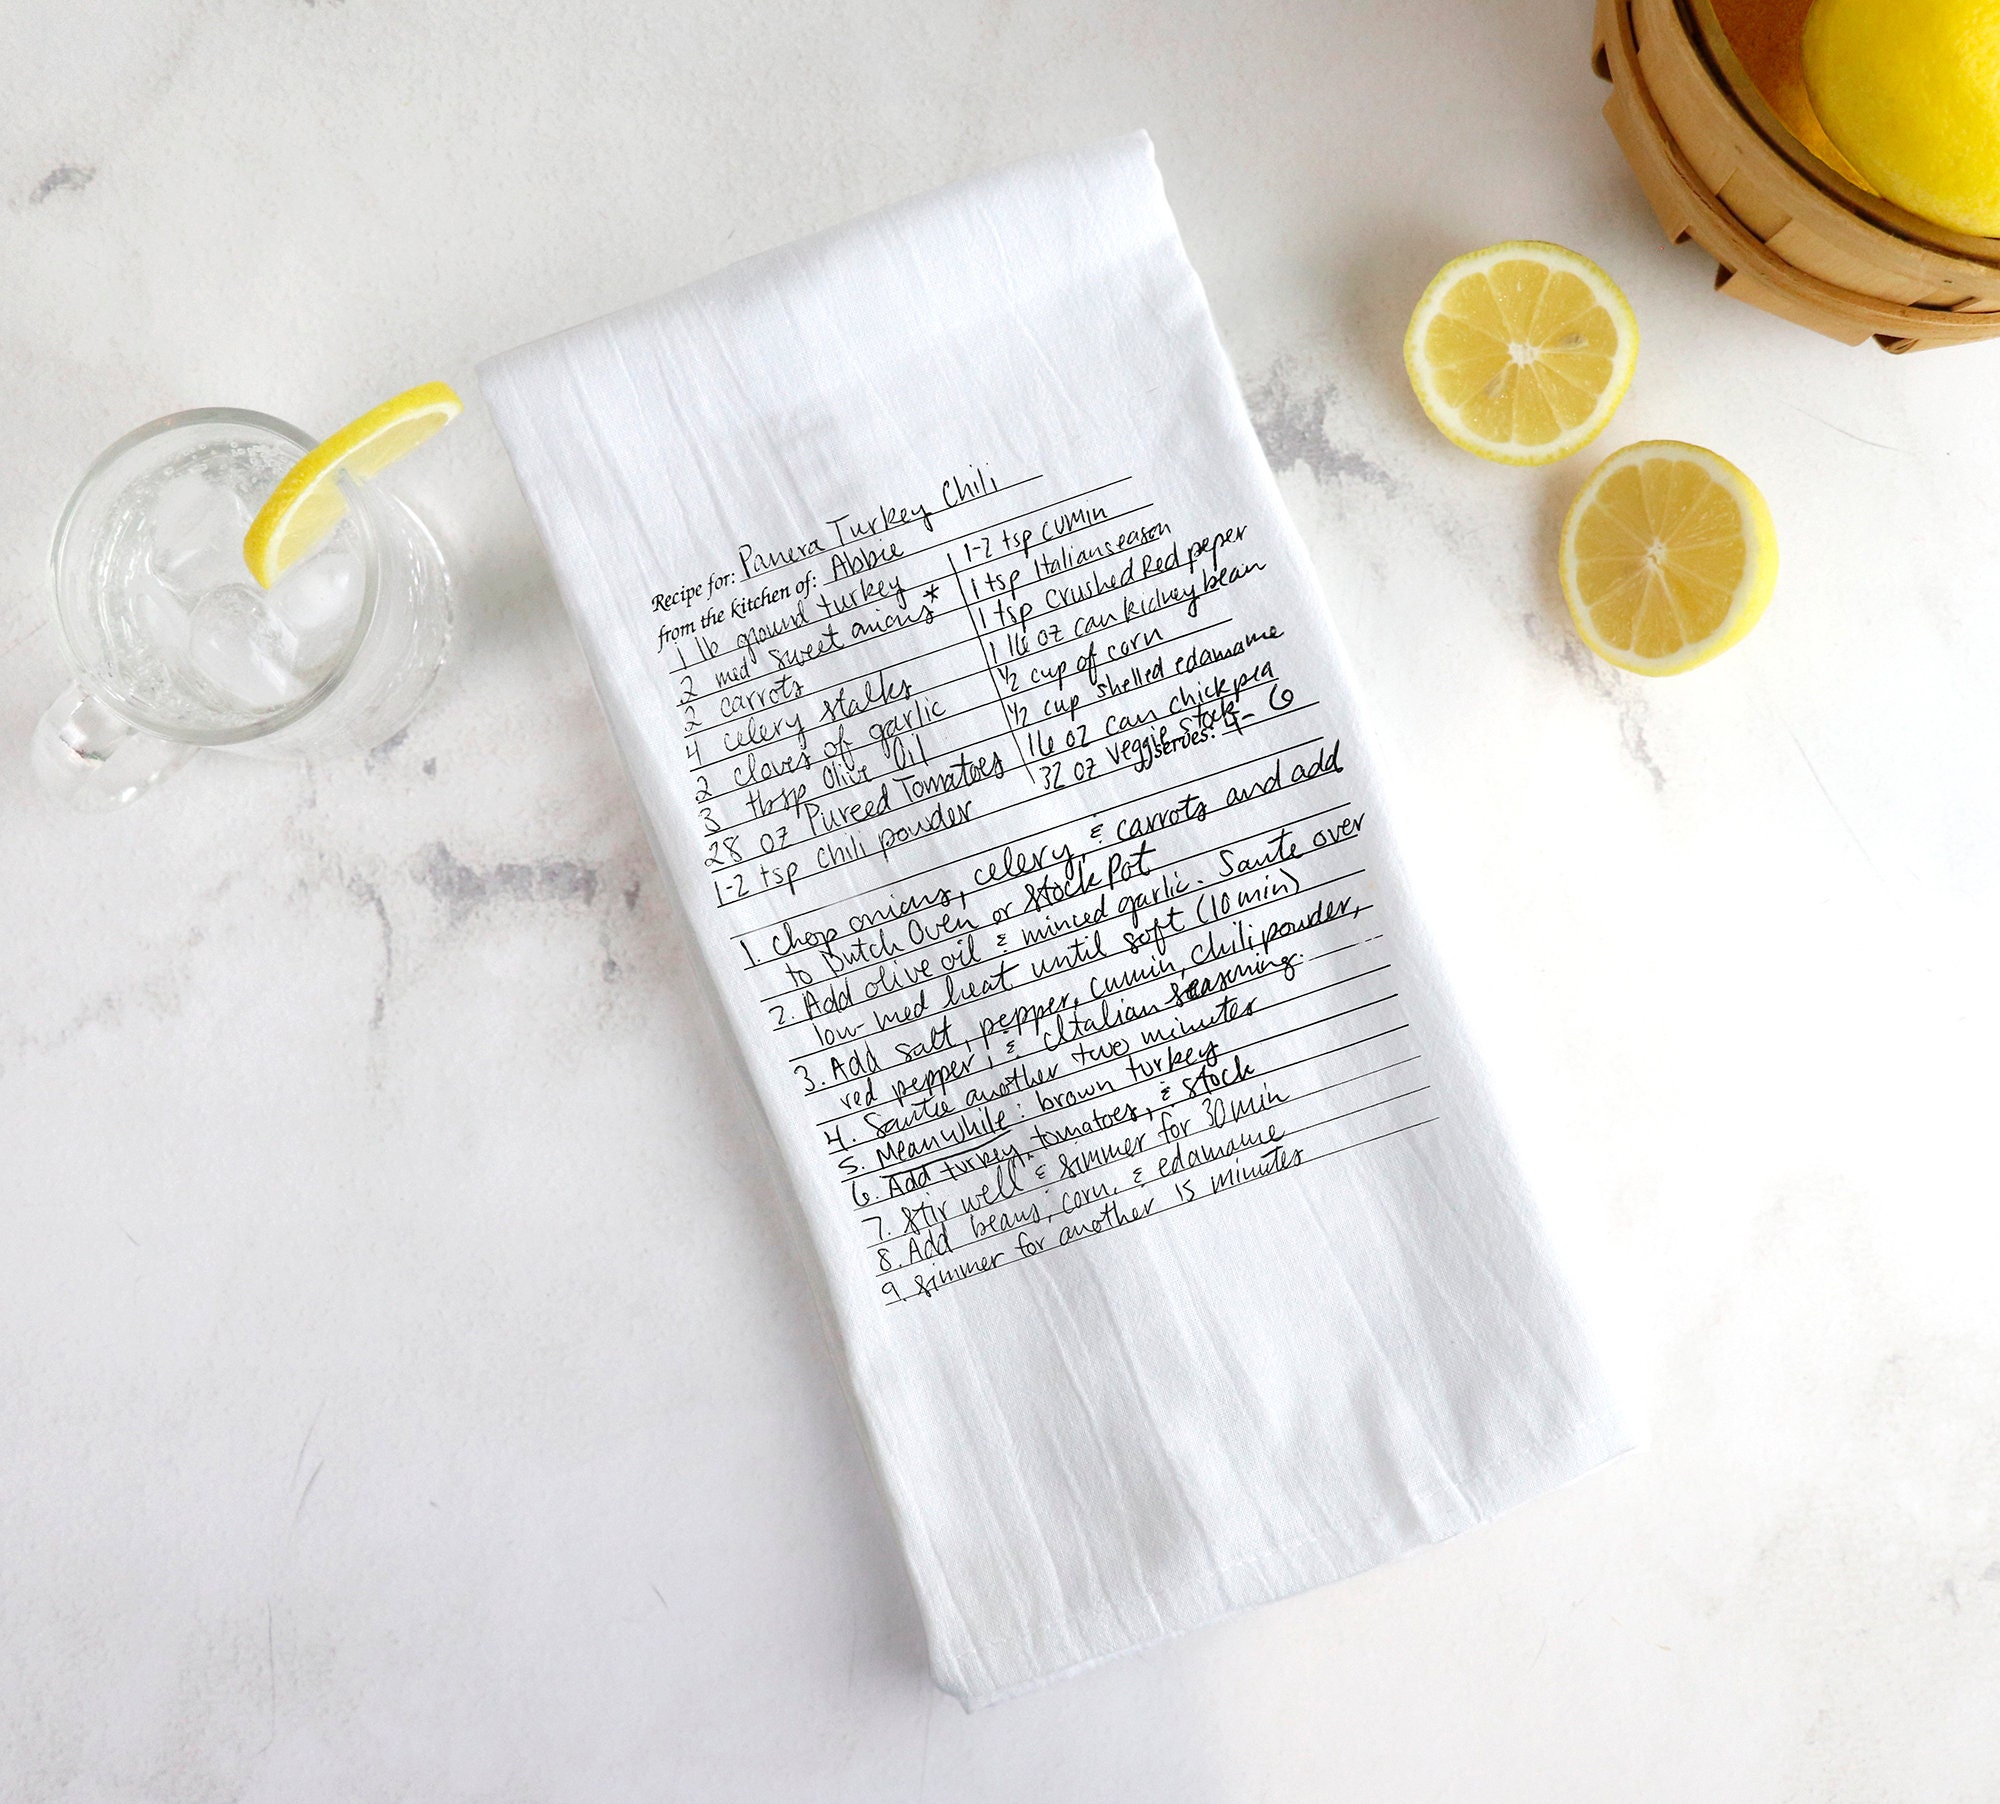 Recipe for: Panera Turkey Chili
from the kitchen of: Abbie
1 lb ground turkey
2 med sweet onions *
2 carrots
4 celery stalks
2 cloves of garlic
3 tbsp Olive Oil
28 oz Pureed Tomatoes
1-2 tsp chili powder
1-2 tsp cumin
1 tsp Italian season
1 tsp crushed Red peper
1 16 oz can kidney bean
1/2 cup of corn
1/2 cup shelled edamame
16 oz can chickpea
32 oz veggie stock
serves: 4-6
1. Chop onions, celery, & carrots and add
to Dutch Oven or Stock Pot
2. Add olive oil & minced garlic. Saute over
low-med heat until soft (10 min)
3. Add salt, pepper, cumin, chili powder,
red pepper, & Italian seasoning.
4. Saute another two minutes
5. Meanwhile: brown turkey
6. Add turkey, tomatoes, & stock
7. Stir well & simmer for 30 min
8. Add beans, corn, & edamame
9. Simmer for another 15 minutes